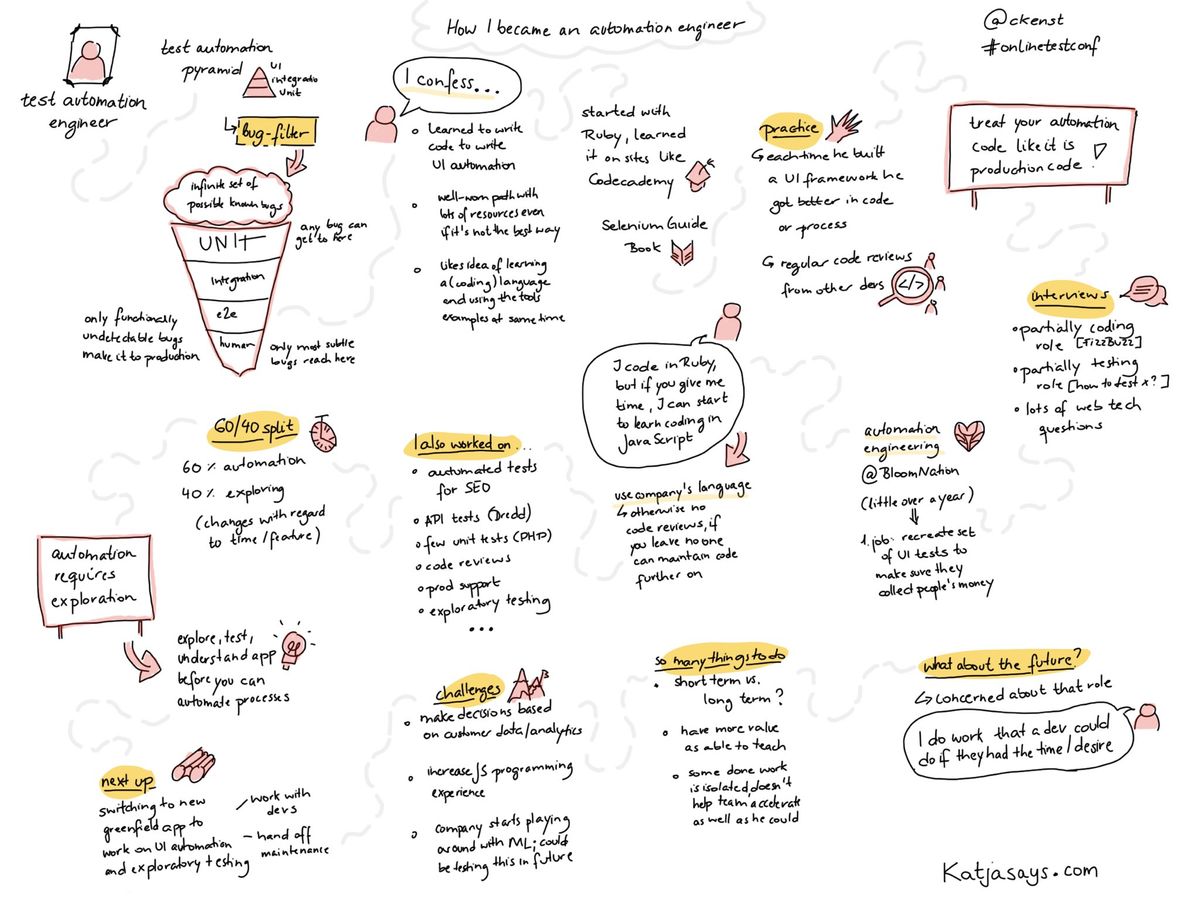 How I became an automation engineer
@ckenst
#onlinetestconf
test automation
engineer
test automation
pyramid
UI
integratio
unit
bug-filter
infinite set of
possible known bugs
UNIT
integration
e2e
human
any bug can
get to here
only functionally
undetectable bugs
make it to production
only most subtle
bugs reach here
I confess...
learned to write
code to write
UI automation
well-worn path with
lots of resources even
if it's not the best way
likes idea of learning
a (coding) language
and using the tools
examples at same time
started with
Ruby, learned
it on sites like
Codecademy
Selenium Guide
Book
practice
each time he built
a UI framework he
got better in code
or process
regular code reviews
from other devs
</>
treat your automation
code like it is
production code!
interviews
partially coding
role [FizzBuzz]
partially testing
role [how to test x?]
lots of web tech
questions
automation
engineering
@BloomNation
(little over a year)
1. job: recreate set
of UI tests to
make sure they
collect people's money
I code in Ruby,
but if you give me
time, I can start
to learn coding in
JavaScript
use company's language
otherwise no
code reviews, if
you leave no one
can maintain code
further on
I also worked on...
automated tests
for SEO
API tests (Dredd)
few unit tests (PHP)
code reviews
prod support
exploratory testing
...
60/40 split
60% automation
40% exploring
(changes with regard
to time/feature)
automation
requires
exploration
explore, test,
understand app
before you can
automate processes
next up
switching to new
greenfield app to
work on UI automation
and exploratory testing
work with
devs
hand off
maintenance
challenges
make decisions based
on customer data/analytics
increase JS programming
experience
company starts playing
around with ML; could
be testing this in future
so many things to do
short term vs.
long term?
have more value
as able to teach
some done work
is isolated, doesn't
help team accelerate
as well as he could
what about the future?
concerned about that role
I do work that a dev could
do if they had the time/desire
Katjasays.com